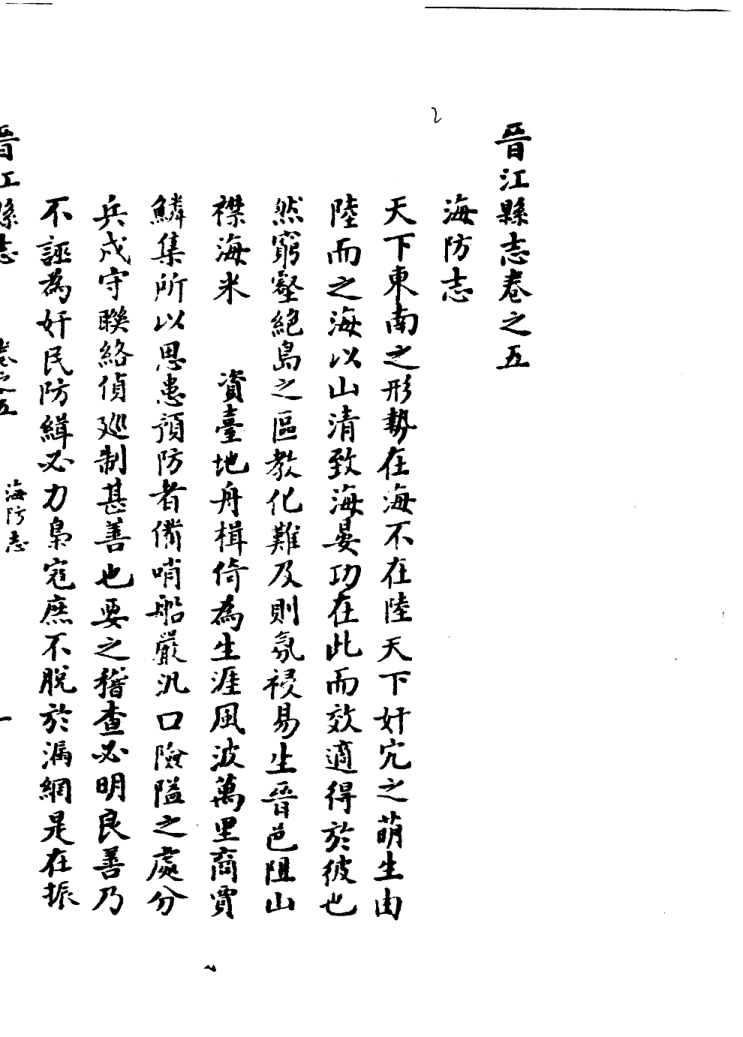 晉江縣志卷之五
海防志
天下東南之形勢在海不在陸天下奸宄之萌生由
陸而之海以山清致海晏功在此而效適得於彼也
然窮壑絕島之區教化難及則氛祲易生晉邑阻山
襟海米 資臺地舟楫倚為生涯風波萬里商賈
鱗集所以思患預防者備哨船嚴汛口險隘之處分
兵戍守聯絡偵廵制甚善也要之稽查必明良善乃
不誣為奸民防緝必力梟宼庶不脫於漏網是在振
晉江縣志 卷之五 海防志 一